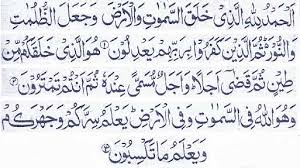 اَلْحَمْدُ لِلّٰهِ الَّذِیْ خَلَقَ السَّمٰوٰتِ وَالْاَرْضَ وَجَعَلَ الظُّلُمٰتِ
وَالنُّوْرَ ثُمَّ الَّذِیْنَ كَفَرُوْا بِرَبِّهِمْ یَعْدِلُوْنَ ۝۱ هُوَ الَّذِیْ خَلَقَكُمْ مِّنْ
طِیْنٍ ثُمَّ قَضٰۤی اَجَلًا ؕ وَاَجَلٌ مُّسَمًّی عِنْدَهٗ ثُمَّ اَنْتُمْ تَمْتَرُوْنَ ۝۲
وَهُوَ اللّٰهُ فِی السَّمٰوٰتِ وَفِی الْاَرْضِ ؕ یَعْلَمُ سِرَّكُمْ وَجَهْرَكُمْ
وَیَعْلَمُ مَا تَكْسِبُوْنَ ۝۳